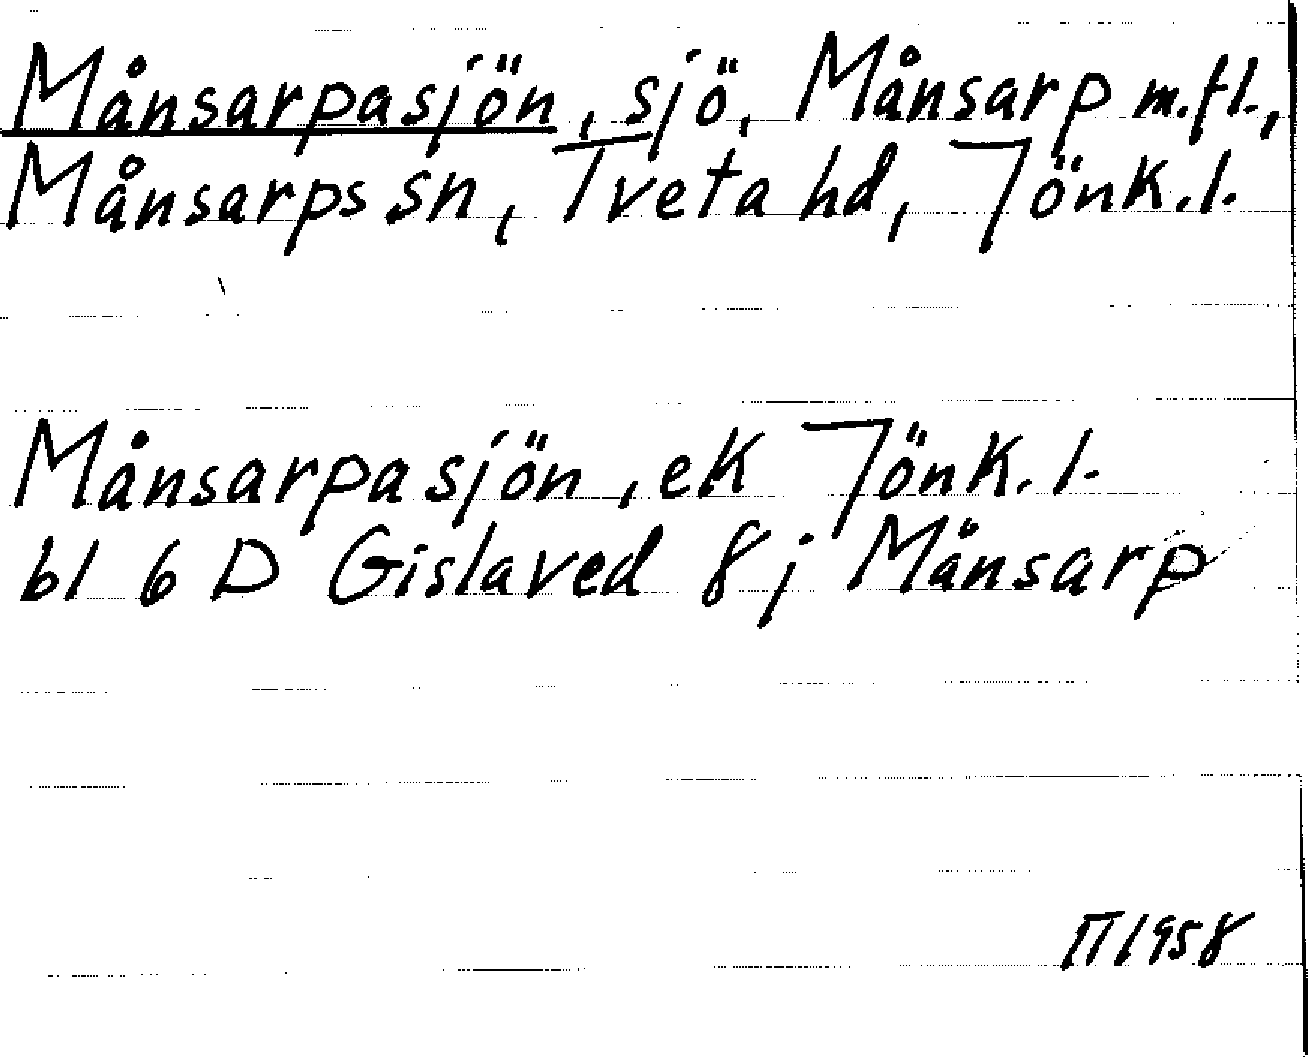 Månsarpasjön, sjö, Månsarp m.fl.,
Månsarps sn, Tveta hd, Jönk.l.
Månsarpasjön, ek Jönk.l.
bl 6 D Gislaved 8 j Månsarp
1958